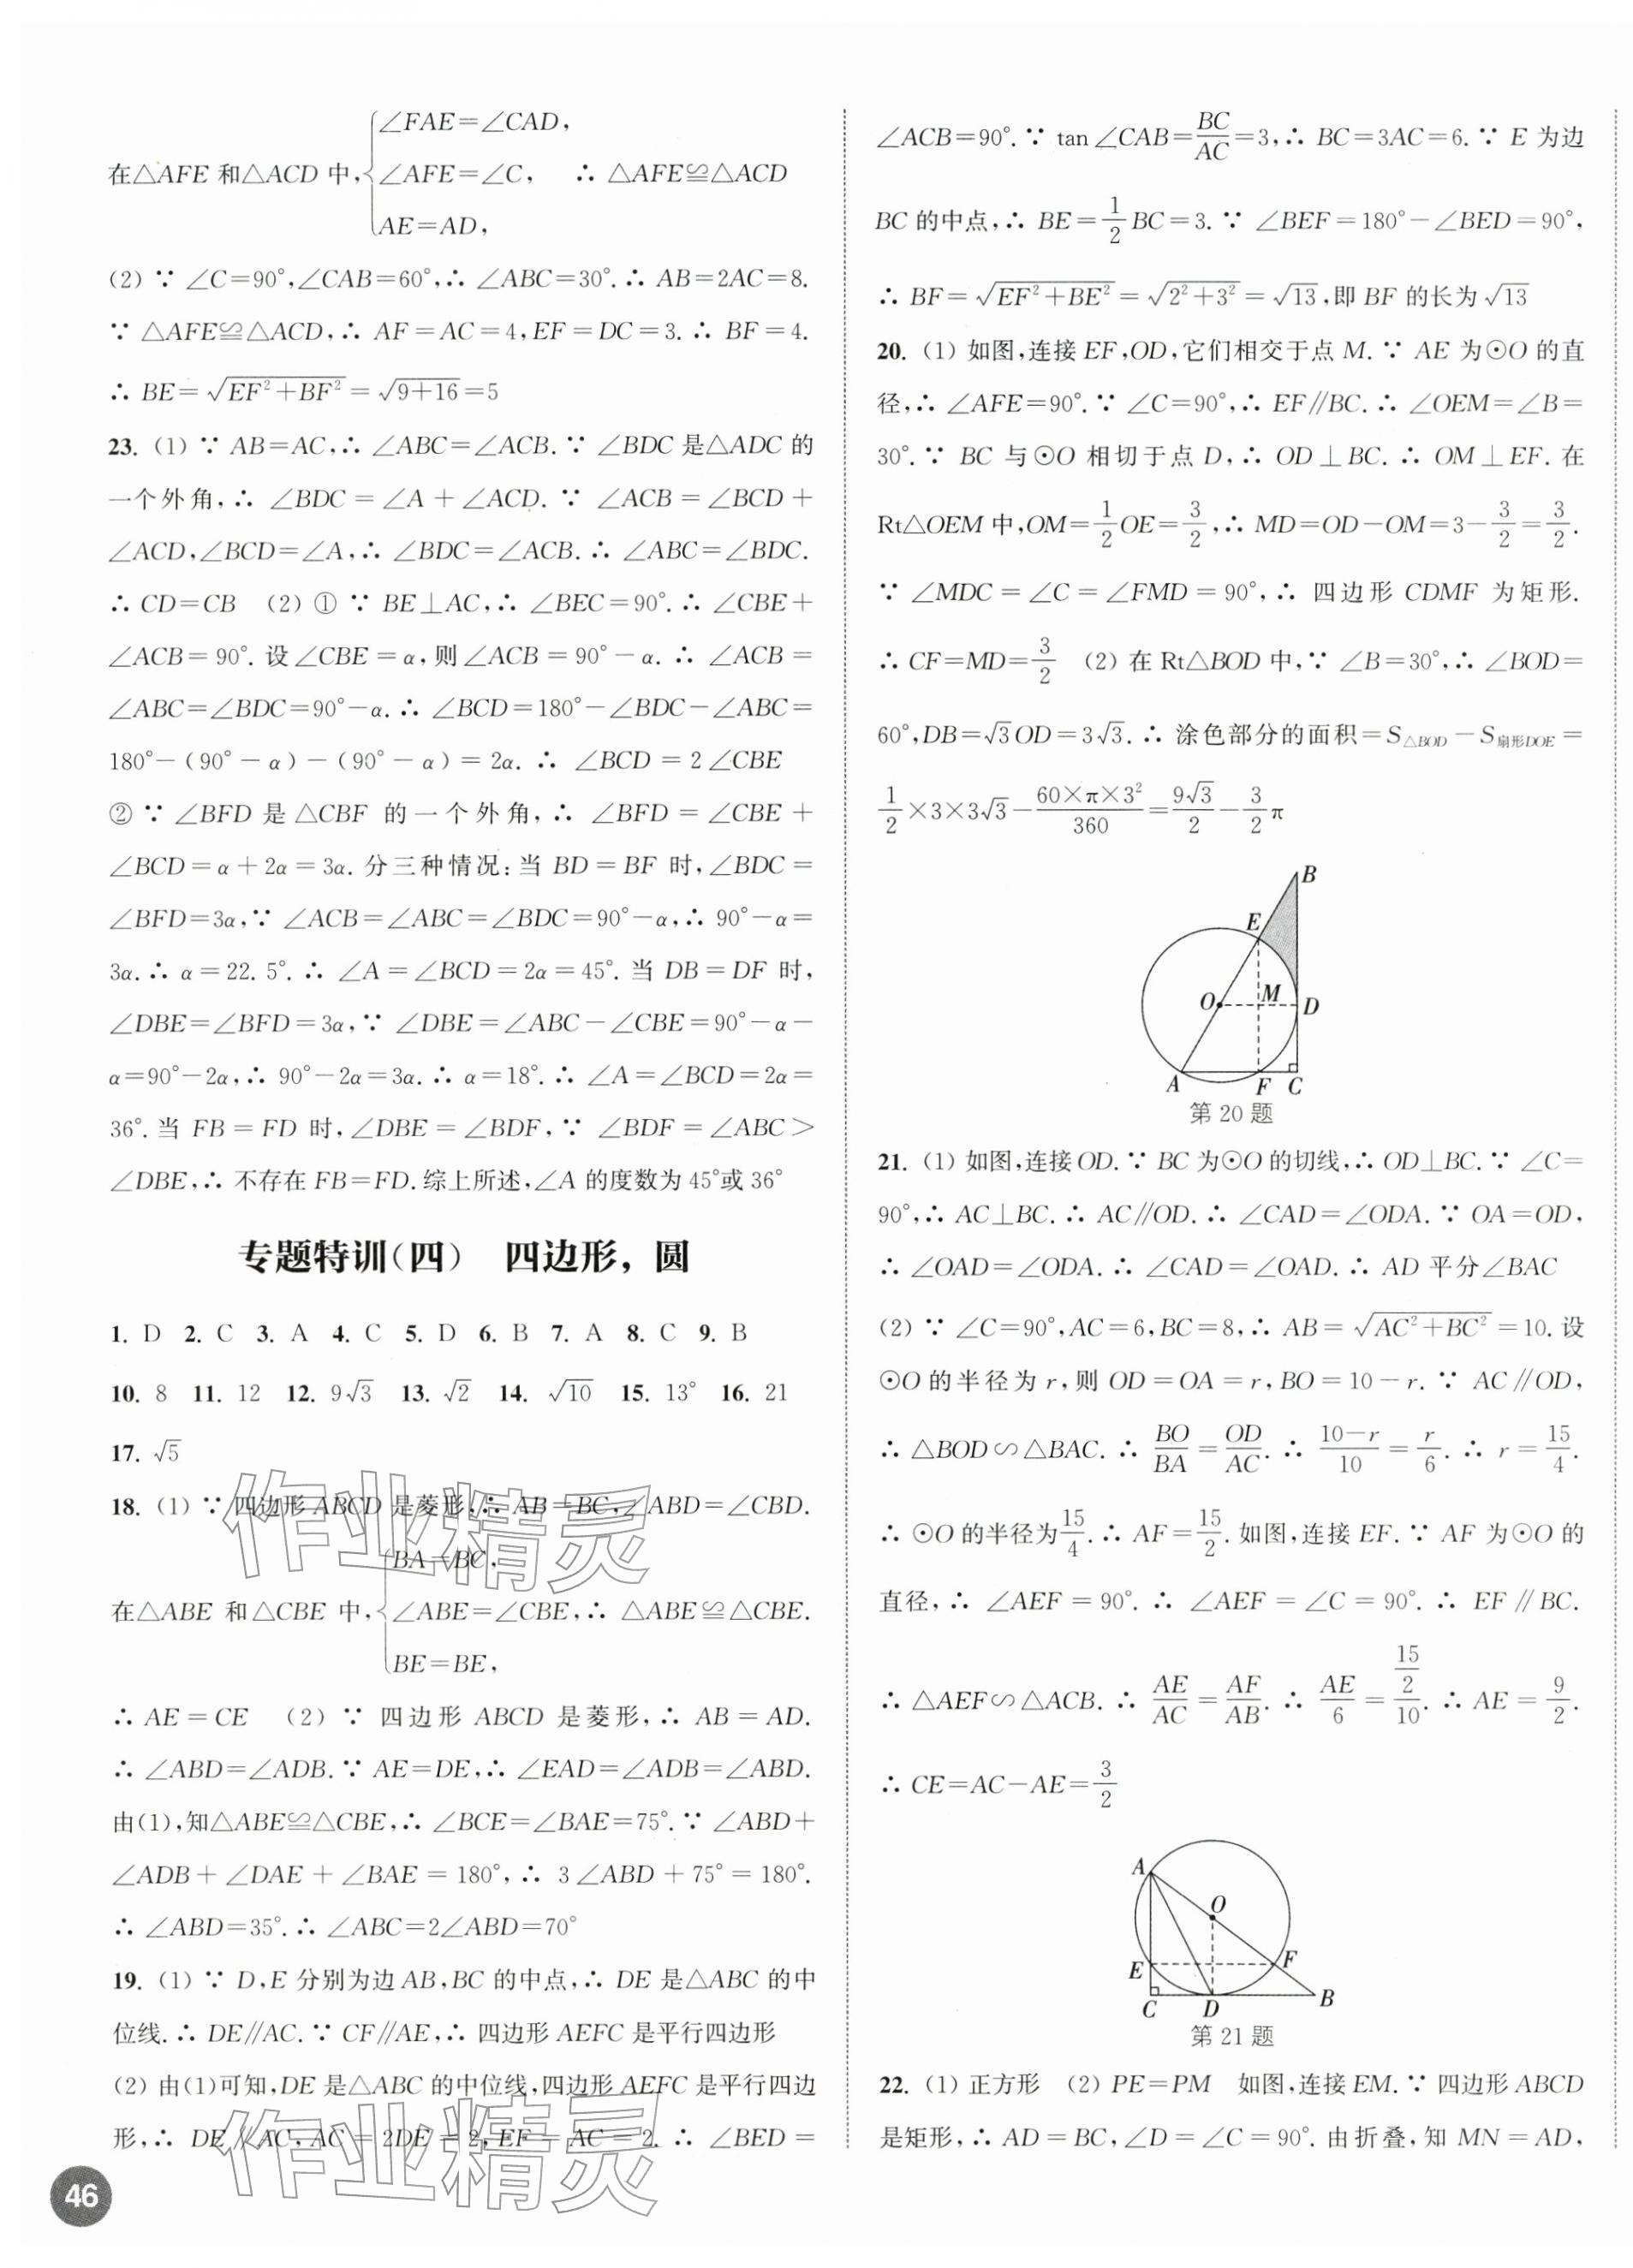 在△AFE 和△ACD 中,{∠FAE=∠CAD,
∠AFE=∠C, ∴ △AFE≌△ACD
AE=AD,
(2) ∵ ∠C=90°,∠CAB=60°,∴ ∠ABC=30°.∴ AB=2AC=8.
∵ △AFE≌△ACD,∴ AF=AC=4,EF=DC=3.∴ BF=4.
∴ BE=√(EF²+BF²)=√(9+16)=5
23. (1) ∵ AB=AC,∴ ∠ABC=∠ACB.∵ ∠BDC 是△ADC 的
一个外角,∴ ∠BDC=∠A+∠ACD. ∵ ∠ACB=∠BCD+
∠ACD,∠BCD=∠A,∴ ∠BDC=∠ACB.∴ ∠ABC=∠BDC.
∴ CD=CB (2) ① ∵ BE⊥AC,∴ ∠BEC=90°.∴ ∠CBE+
∠ACB=90°. 设∠CBE=α,则∠ACB=90°-α. ∴ ∠ACB=
∠ABC=∠BDC=90°-α.∴ ∠BCD=180°-∠BDC-∠ABC=
180°-(90°-α)-(90°-α)=2α. ∴ ∠BCD=2∠CBE
② ∵ ∠BFD 是 △CBF 的一个外角,∴ ∠BFD=∠CBE+
∠BCD=α+2α=3α. 分三种情况:当 BD=BF 时,∠BDC=
∠BFD=3α,∵ ∠ACB=∠ABC=∠BDC=90°-α,∴ 90°-α=
3α.∴ α=22.5°.∴ ∠A=∠BCD=2α=45°. 当 DB=DF 时,
∠DBE=∠BFD=3α,∵ ∠DBE=∠ABC-∠CBE=90°-α-
α=90°-2α,∴ 90°-2α=3α.∴ α=18°.∴ ∠A=∠BCD=2α=
36°. 当 FB=FD 时,∠DBE=∠BDF,∵ ∠BDF=∠ABC>
∠DBE,∴ 不存在 FB=FD.综上所述,∠A 的度数为 45°或 36°
专题特训(四) 四边形,圆
1. D 2. C 3. A 4. C 5. D 6. B 7. A 8. C 9. B
10. 8 11. 12 12. 9√3 13. √2 14. √10 15. 13° 16. 21
17. √5
18. (1) ∵ 四边形 ABCD 是菱形,∴ AB=BC,∠ABD=∠CBD.
在△ABE 和△CBE 中,{BA=BC,
∠ABE=∠CBE,∴ △ABE≌△CBE.
BE=BE,
∴ AE=CE (2) ∵ 四边形 ABCD 是菱形,∴ AB=AD.
∴ ∠ABD=∠ADB.∵ AE=DE,∴ ∠EAD=∠ADB=∠ABD.
由(1),知△ABE≌△CBE,∴ ∠BCE=∠BAE=75°.∵ ∠ABD+
∠ADB+∠DAE+∠BAE=180°,∴ 3∠ABD+75°=180°.
∴ ∠ABD=35°.∴ ∠ABC=2∠ABD=70°
19. (1) ∵ D,E 分别为边 AB,BC 的中点,∴ DE 是△ABC 的中
位线.∴ DE∥AC.∵ CF∥AE,∴ 四边形 AEFC 是平行四边形
(2) 由(1)可知,DE 是△ABC 的中位线,四边形 AEFC 是平行四边
形,∴ DE∥AC,AC=2DE=2,EF=AC=2.∴ ∠BED=
46
∠ACB=90°.∵ tan∠CAB=BC/AC=3,∴ BC=3AC=6.∵ E 为边
BC 的中点,∴ BE=1/2 BC=3.∵ ∠BEF=180°-∠BED=90°,
∴ BF=√(EF²+BE²)=√(2²+3²)=√13,即 BF 的长为√13
20. (1) 如图,连接 EF,OD,它们相交于点 M.∵ AE 为⊙O 的直
径,∴ ∠AFE=90°.∵ ∠C=90°,∴ EF∥BC.∴ ∠OEM=∠B=
30°.∵ BC 与⊙O 相切于点 D,∴ OD⊥BC.∴ OM⊥EF.在
Rt△OEM 中,OM=1/2 OE=3/2,∴ MD=OD-OM=3-3/2=3/2.
∵ ∠MDC=∠C=∠FMD=90°,∴ 四边形 CDMF 为矩形.
∴ CF=MD=3/2 (2) 在 Rt△BOD 中,∵ ∠B=30°,∴ ∠BOD=
60°,DB=√3OD=3√3.∴ 涂色部分的面积=S△BOD-S扇形DOE=
1/2×3×3√3-(60×π×3²)/360=9√3/2-3/2π
B
E
O M D
A F C
第 20 题
21. (1) 如图,连接 OD.∵ BC 为⊙O 的切线,∴ OD⊥BC.∵ ∠C=
90°,∴ AC⊥BC.∴ AC∥OD.∴ ∠CAD=∠ODA.∵ OA=OD,
∴ ∠OAD=∠ODA.∴ ∠CAD=∠OAD.∴ AD 平分∠BAC
(2) ∵ ∠C=90°,AC=6,BC=8,∴ AB=√(AC²+BC²)=10.设
⊙O 的半径为 r,则 OD=OA=r,BO=10-r.∵ AC∥OD,
∴ △BOD∽△BAC.∴ BO/BA=OD/AC.∴ (10-r)/10=r/6.∴ r=15/4.
∴ ⊙O 的半径为15/4.∴ AF=15/2.如图,连接 EF.∵ AF 为⊙O 的
直径,∴ ∠AEF=90°.∴ ∠AEF=∠C=90°.∴ EF∥BC.
∴ △AEF∽△ACB.∴ AE/AC=AF/AB.∴ AE/6=(15/2)/10.∴ AE=9/2.
∴ CE=AC-AE=3/2
A
O
E F
C D B
第 21 题
22. (1) 正方形 (2) PE=PM 如图,连接 EM.∵ 四边形 ABCD
是矩形,∴ AD=BC,∠D=∠C=90°.由折叠,知 MN=AD,
作业精灵
作业精灵